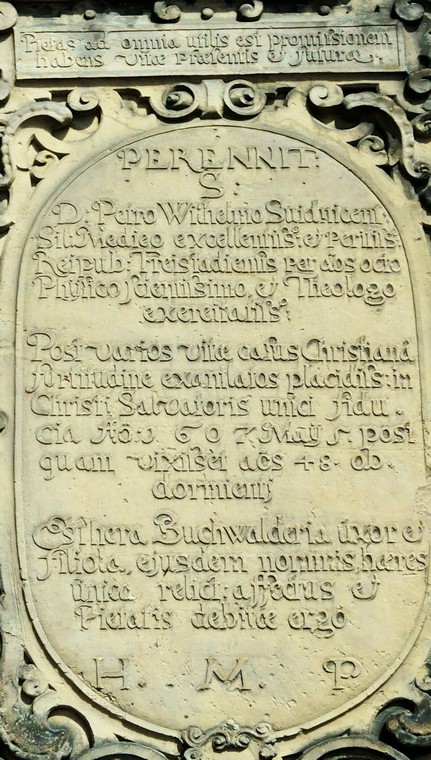 Pietas ad omnia utilis est promissionem
habens vitae Praesentis et futurae.
PERENNIT:
S:
D: Petro Wilhelmo Suidnicen:
Sil: Medico excellentiss: et Peritiss:
Reipub: Freistadiensis per aōs octo
Physico scientissimo, et Theologo
exercitatiss:
Post varios vitae casus Christianá
fortitudine exantlatos placidiss: in
Christi Salvatoris unici fidu-
cia Aō: 1607. Maÿ 5. post
quam vixisset aōs 48. ob-
dormienti
Esthera Buchwalderia uxor et
filiola, ejusdem nominis, haeres
unica relict: affectus et
Pietatis debitae ergó
H. M. P